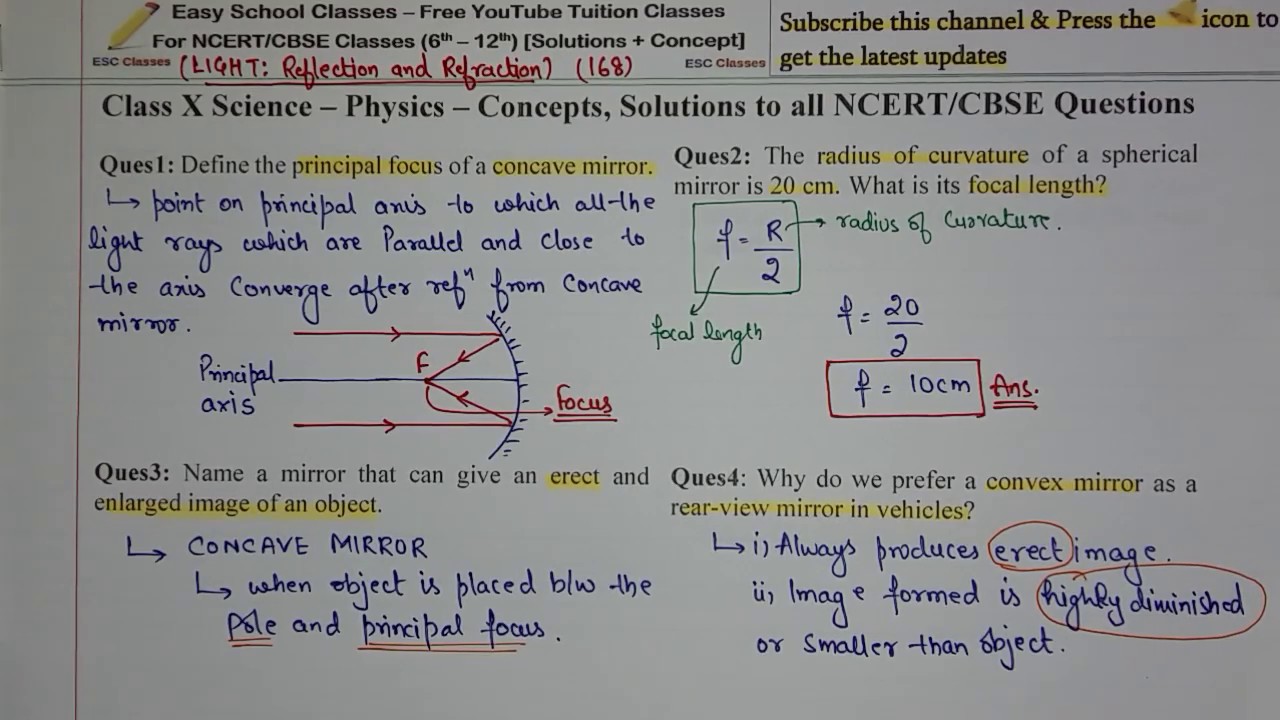 Easy School Classes – Free YouTube Tuition Classes
For NCERT/CBSE Classes (6th – 12th) [Solutions + Concept]
ESC Classes (LIGHT: Reflection and Refraction) (168) ESC Classes
Subscribe this channel & Press the icon to
get the latest updates
Class X Science – Physics – Concepts, Solutions to all NCERT/CBSE Questions
Ques1: Define the principal focus of a concave mirror.
↳ point on principal axis to which all the
light rays which are Parallel and close to
the axis Converge after refn from Concave
mirror.
F
Principal
axis
Focus
Ques2: The radius of curvature of a spherical
mirror is 20 cm. What is its focal length?
f = R/2 → radius of Curvature.
focal length
f = 20/2
f = 10cm Ans.
Ques3: Name a mirror that can give an erect and
enlarged image of an object.
↳ CONCAVE MIRROR
↳ when object is placed b/w the
Pole and principal focus.
Ques4: Why do we prefer a convex mirror as a
rear-view mirror in vehicles?
↳ i, Always produces erect image.
ii, Image formed is highly diminished
or smaller than object.